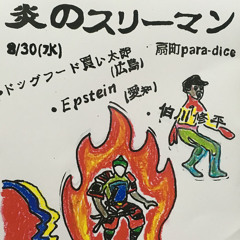 炎のスリーマン
8/30(水)
扇町para-dice
・ドッグフード買い太郎
(広島)
・Epstein (愛知)
・伯川修平